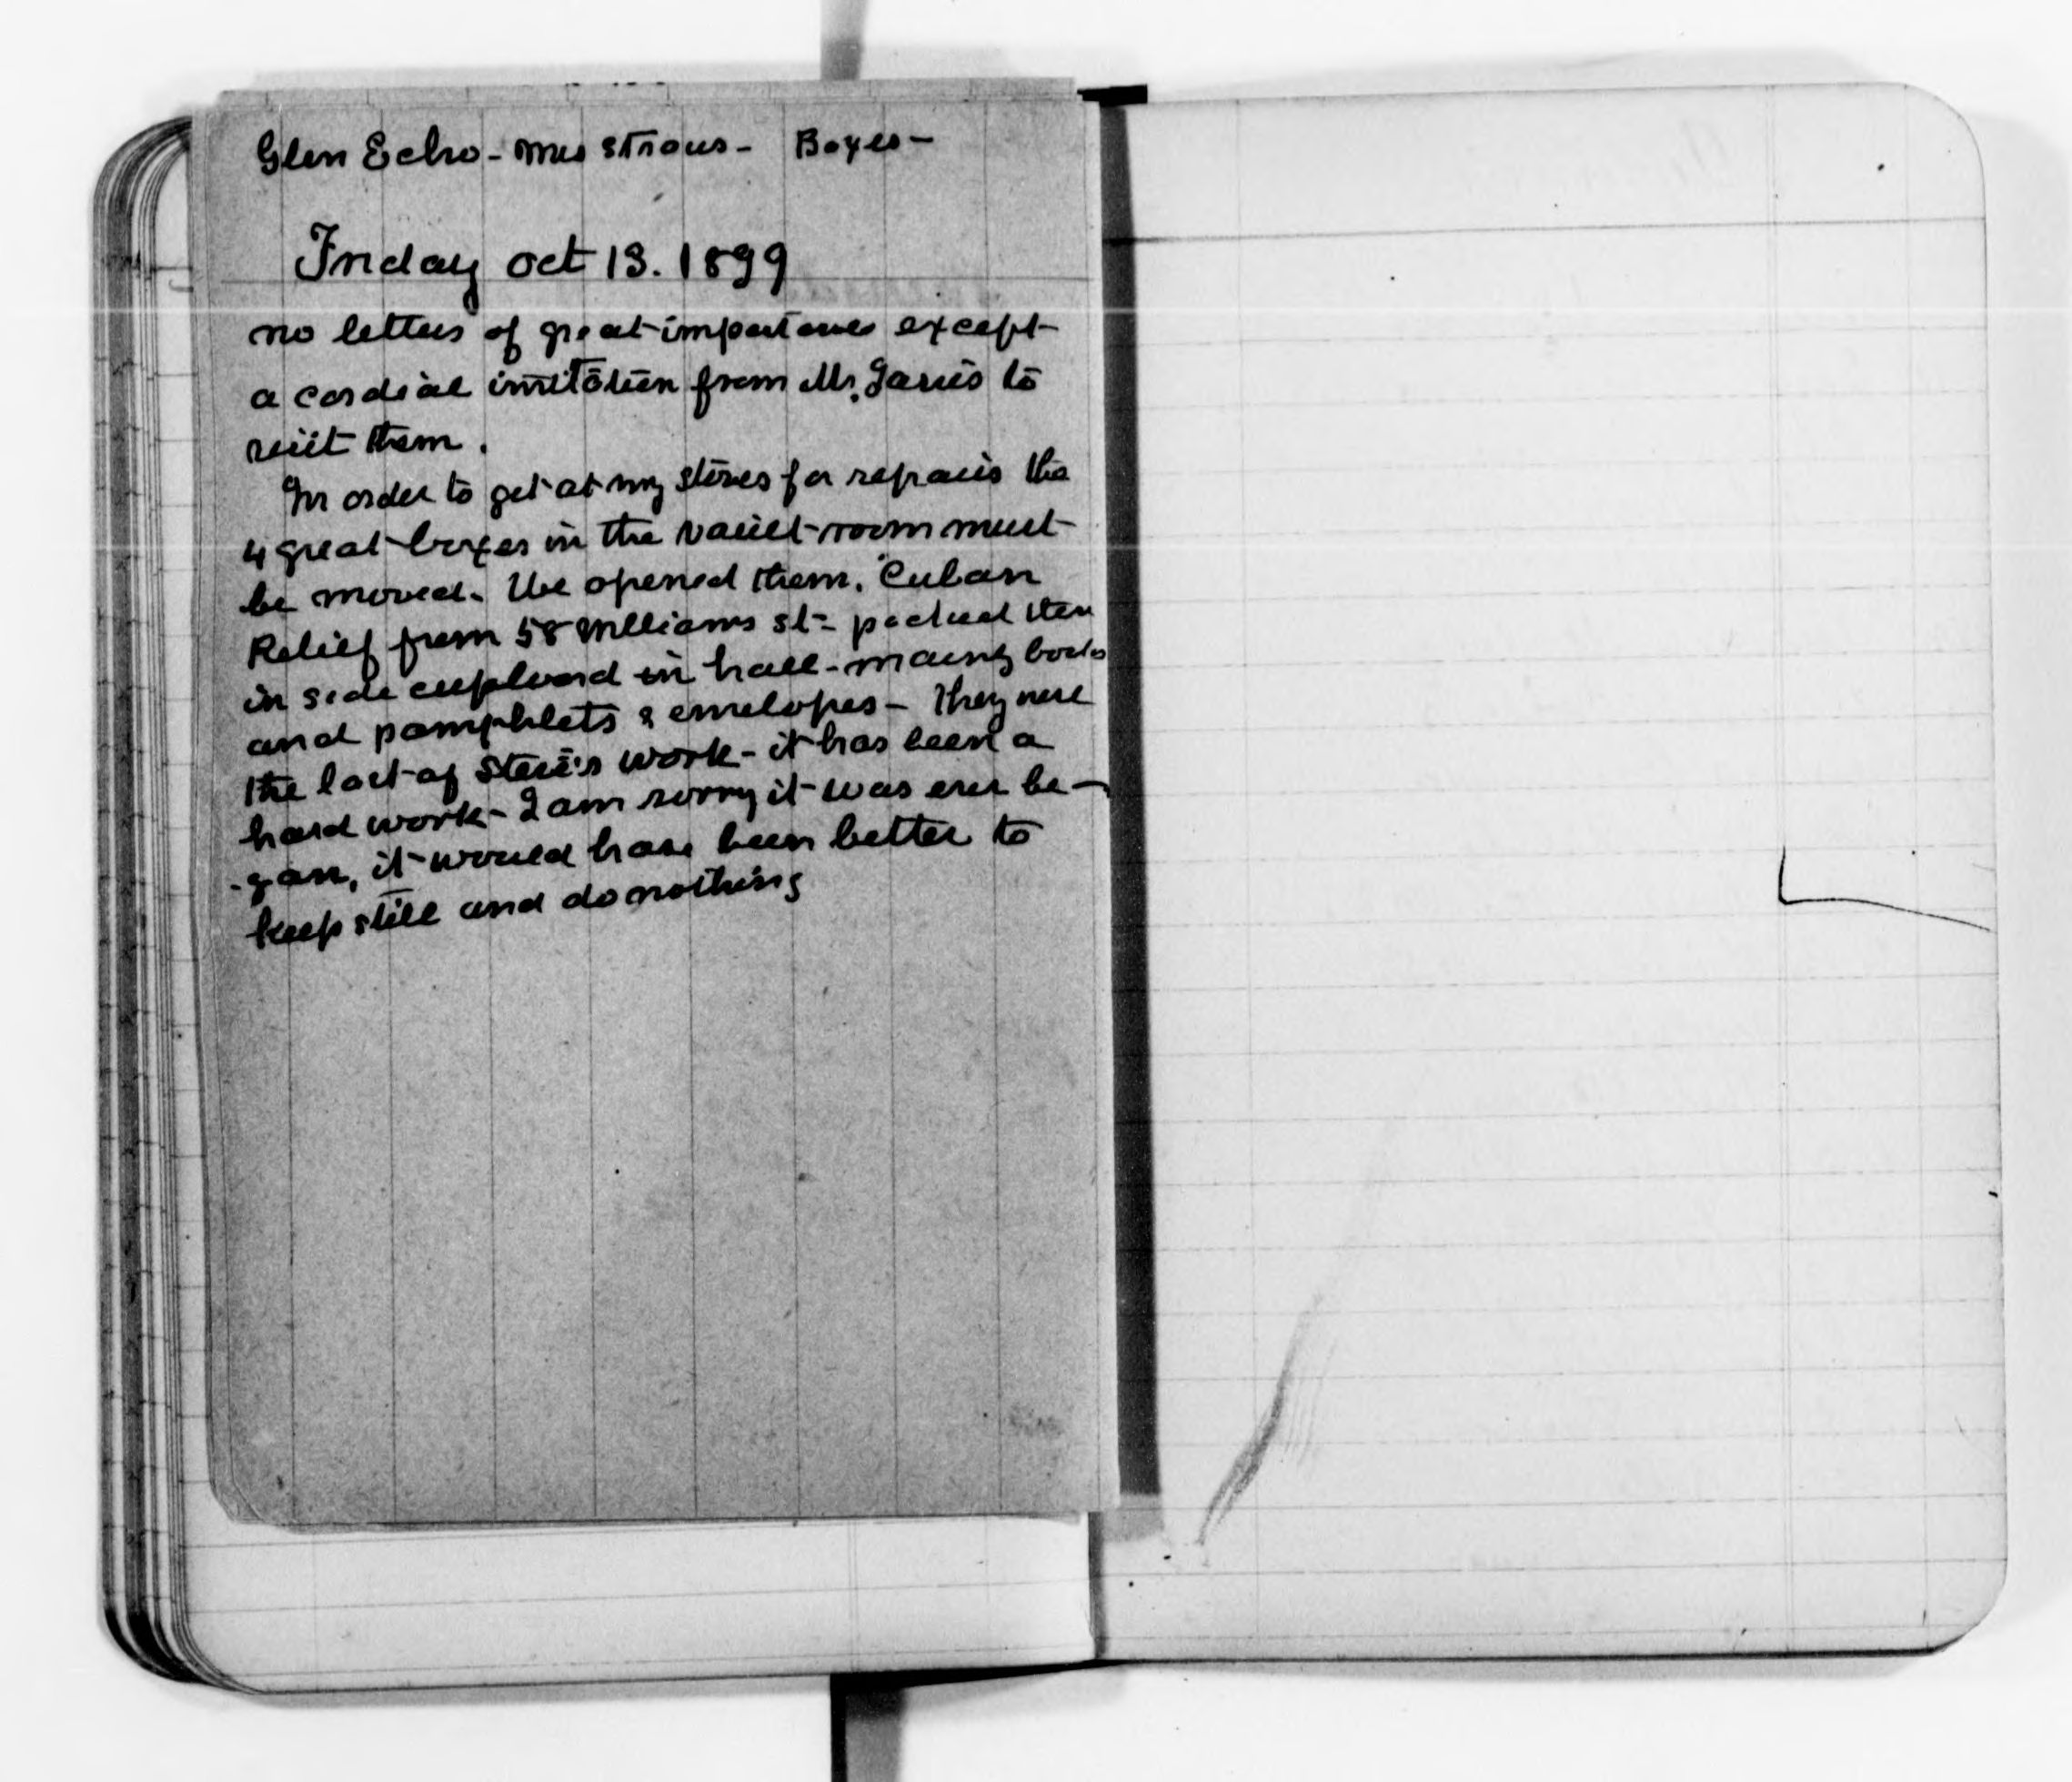 Glen Echo - Mrs Straus - Boxes -
Friday Oct 13. 1899
no letters of great importance except
a cordial invitation from Mr. to
visit them.
In order to get at my stoves for repairs the
4 great boxes in the vault room must
be moved. We opened them. Cuban
Relief from 58 Williams st - packed them
in side cupboard in hall - many books
and pamphlets & envelopes - They were
the last of work - it has been a
hard work - I am sorry it was ever be-
-gan, it would have been better to
keep still and do nothing